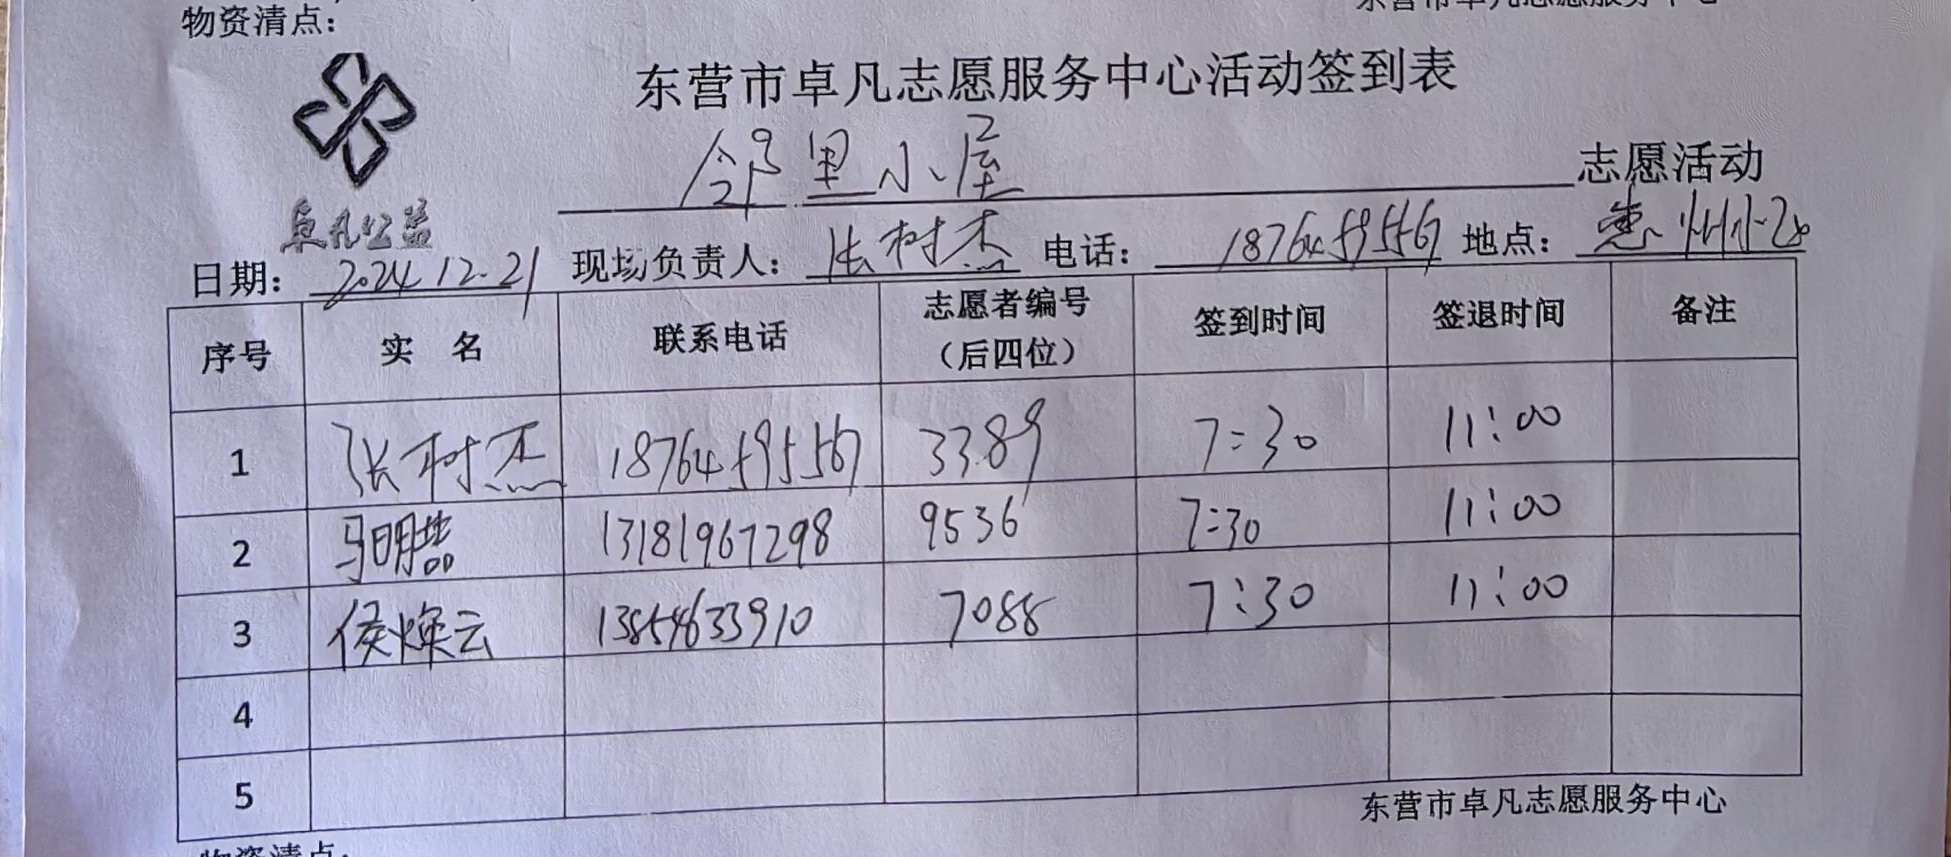 物资清点：
东营市卓凡志愿服务中心
东营市卓凡志愿服务中心活动签到表
邻里小屋 志愿活动
卓凡公益
日期：2024.12.21 现场负责人：张树杰 电话：18764595567 地点：惠州小区
序号 实 名 联系电话 志愿者编号（后四位） 签到时间 签退时间 备注
1 张树杰 18764595567 3389 7:30 11:00
2 马明 13181967298 9536 7:30 11:00
3 侯焕云 13854633910 7088 7:30 11:00
4
5
东营市卓凡志愿服务中心
物资清点：